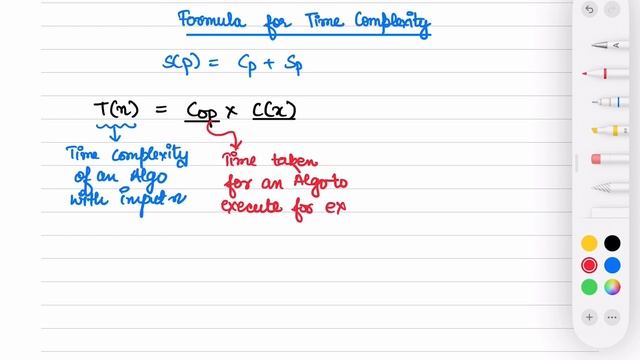 Formula for Time Complexity
S(p) = Cp + Sp
T(n) = Cop × C(x)
Time complexity
of an Algo
with input n
Time taken
for an Algo to
execute for ex